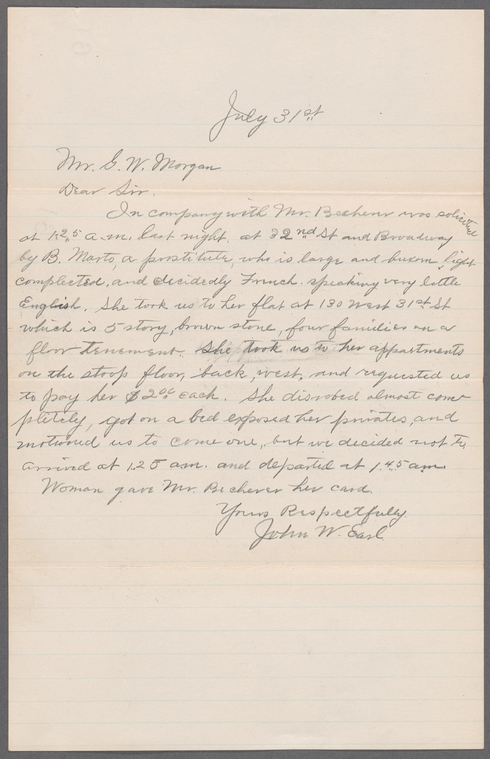 July 31st
Mr. G. W. Morgan
Dear Sir.
In company with Mr. Becherer was solicited
at 1.25 a.m. last night. at 32nd St and Broadway
by B. Marto, a prostitute, who is large and buxom, light
complected, and decidedly French. speaking very little
English. She took us to her flat at 130 West 31st St
which is 5 story, brown stone, four families on a
floor tenement. She took us to her appartments
on the stoop floor, back, west, and requested us
to pay her $2.00 each. She disrobed almost com-
pletely, got on a bed exposed her privates, and
motioned us to come one, but we decided not to
arrived at 1.25 am. and departed at 1.45 am
Woman gave Mr. Becherer her card.
Yours Respectfully
John W. Earl